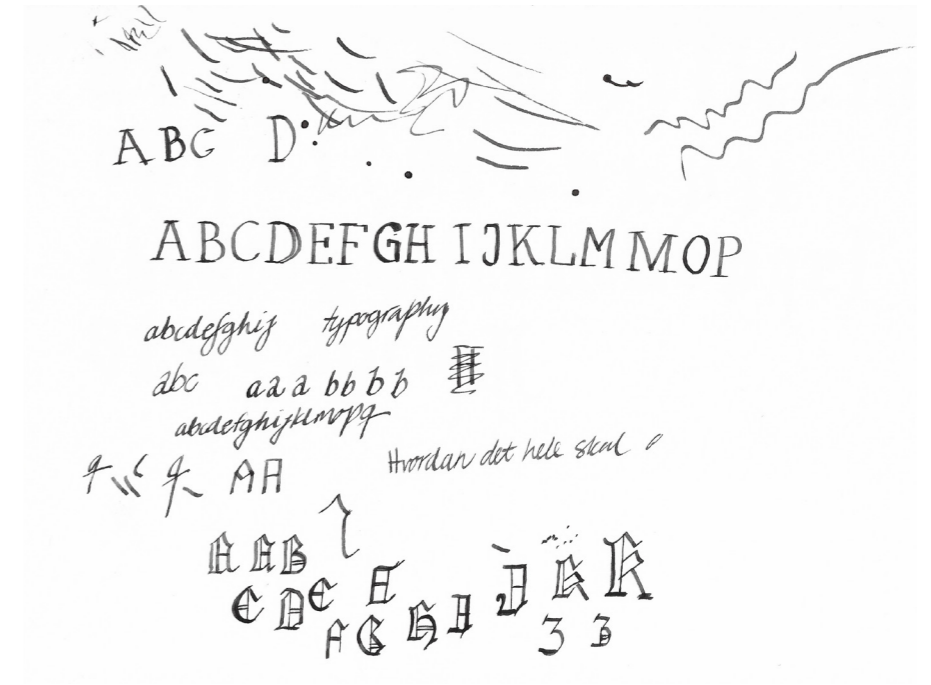 ABC D
ABCDEFGH IJKLM MOP
abcdefghij typography
abc aaa bb b b
abcdefghijklmopq
q q AA
Hvordan det hele skal
A AB
C D E E
F G H I J K K
3 3